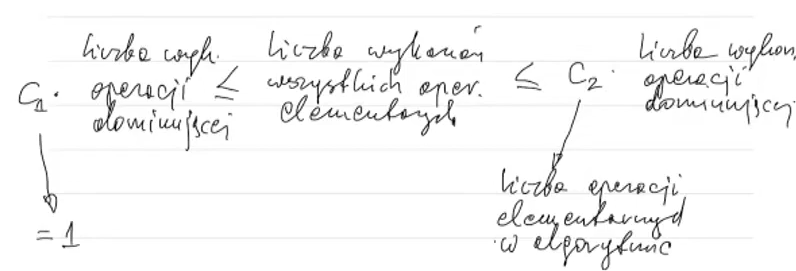 C₁ · liczba wyk. operacji dominującej ≤ liczba wykonań wszystkich oper. elementarnych ≤ C₂ · liczba wykon. operacji dominującej
= 1
liczba operacji
elementarnych
w algorytmie